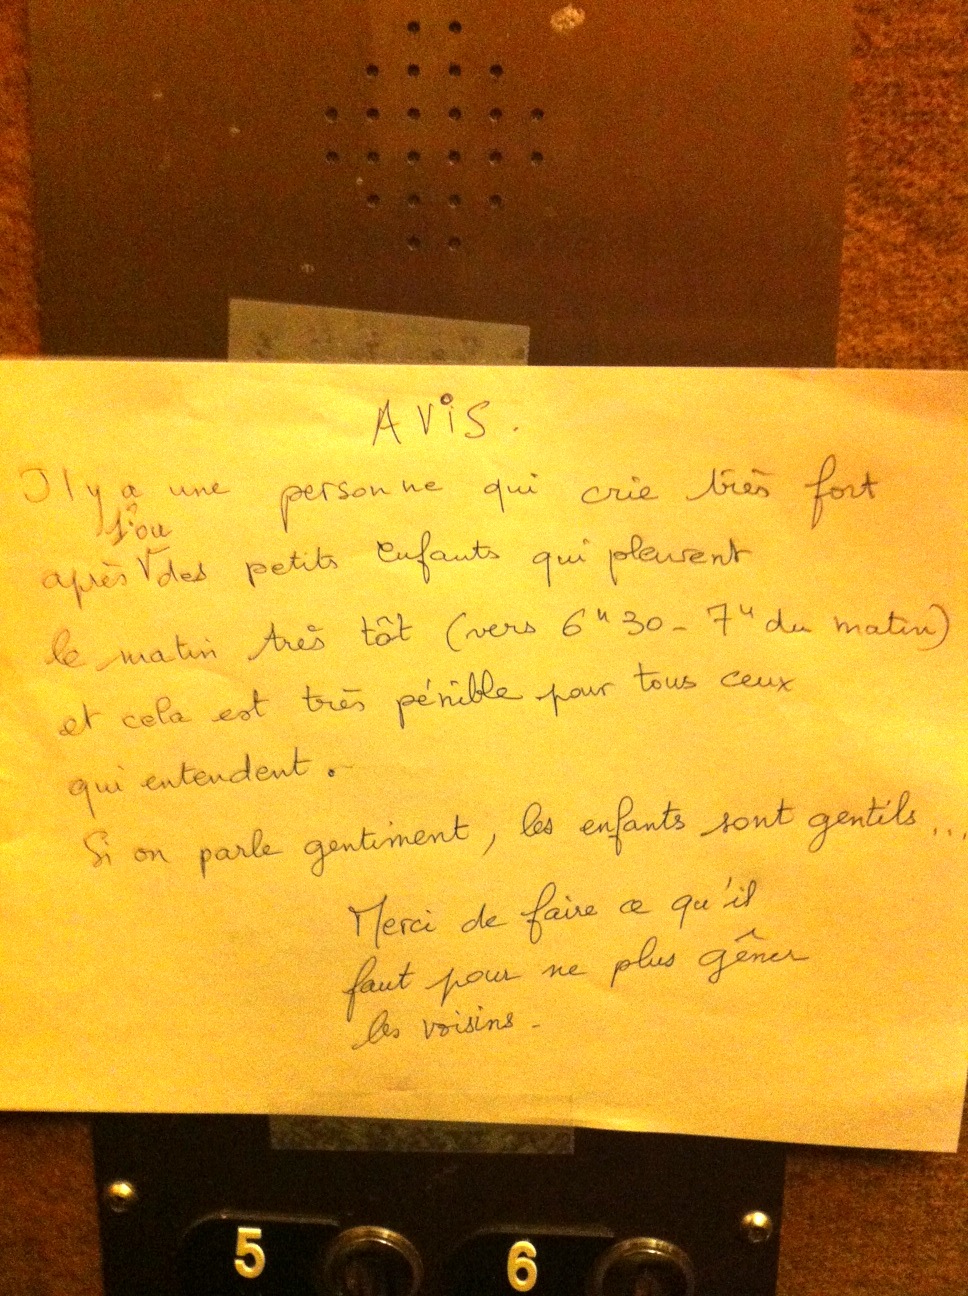 AVIS.
Il y a une personne qui crie très fort
1 ou
après des petits enfants qui pleurent
le matin très tôt (vers 6h30 - 7h du matin)
et cela est très pénible pour tous ceux
qui entendent.
Si on parle gentiment, les enfants sont gentils...
Merci de faire ce qu'il
faut pour ne plus gêner
les voisins -
5 6